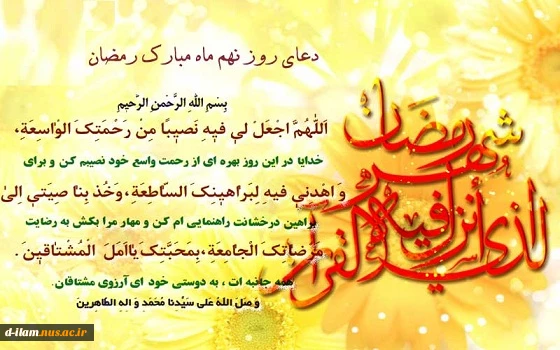 دعای روز نهم ماه مبارک رمضان
بِسْمِ اللهِ الرَّحْمنِ الرَّحیمِ
اَللّهُمَّ اجْعَلْ لی فیهِ نَصیبًا مِنْ رَحْمَتِکَ الْواسِعَةِ،
خدایا در این روز بهره ای از رحمت واسع خود نصیبم کن و برای
وَ اهْدِنی فیهِ لِبَراهینِکَ السّاطِعَةِ،وَخُذْ بِنا صِیَتی اِلیٰ
براهین درخشانت راهنمایی ام کن و مهار مرا بکش به رضایت
مَرْضاتِکَ الْجامِعَةِ،بِمَحَبَّتِکَ یااَمَلَ الْمُشْتاقینَ.
همه جانبه ات ، به دوستی خود ای آرزوی مشتاقان.
وَ صَلَّ اللهُ عَلی سَیِّدِنا مُحَمَّدٍ وَ الِهِ الطّاهِرینَ
شهر رمضان
الذی أنزل فیه القرآن
d-ilam.nus.ac.ir